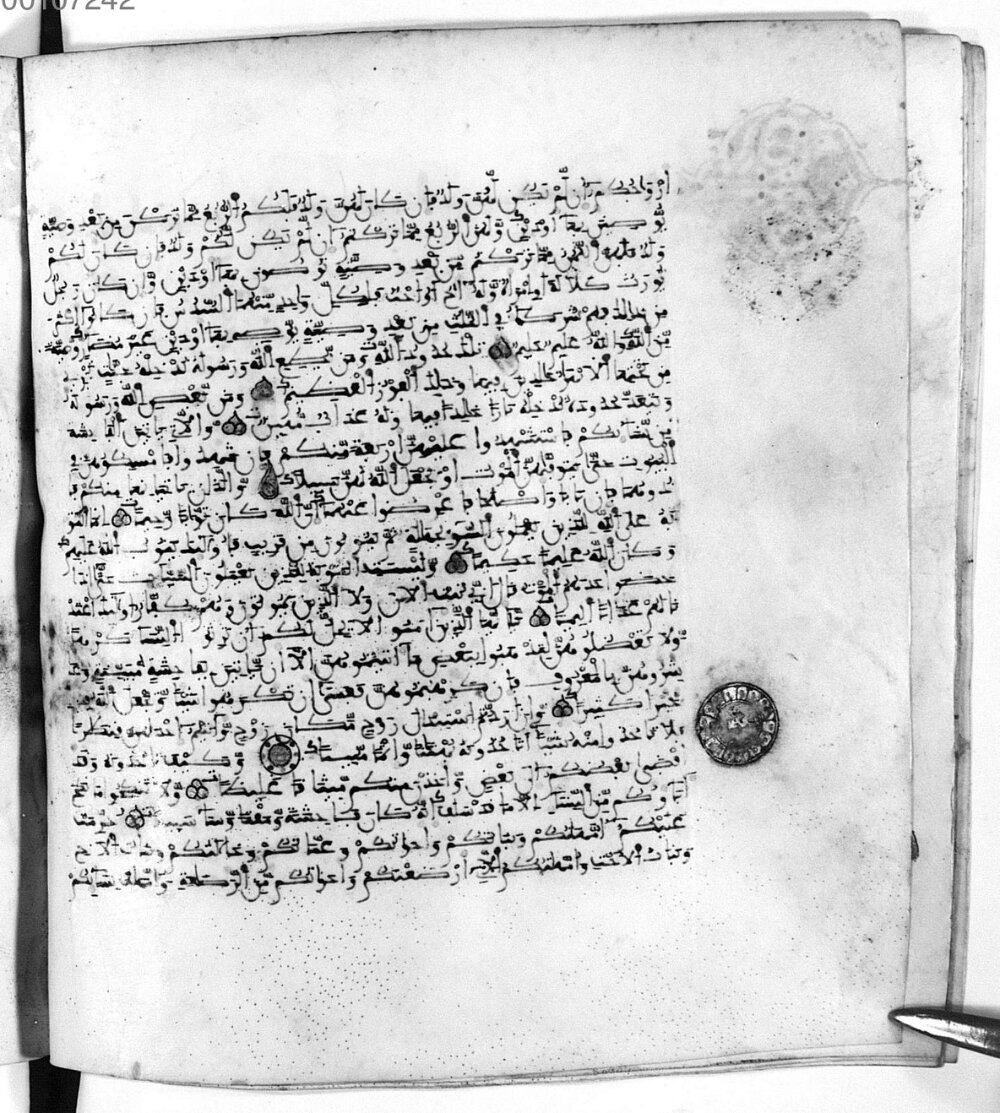 00107242
أزواجكم إن لم يكن لهن ولد فإن كان لهن ولد فلكم الربع مما تركن من بعد وصية
يوصين بها أو دين ولهن الربع مما تركتم إن لم يكن لكم ولد فإن كان لكم
ولد فلهن الثمن مما تركتم من بعد وصية توصون بها أو دين وإن كان رجل
يورث كللة أو امرأة وله أخ أو أخت فلكل واحد منهما السدس فإن كانوا أكثر
من ذلك فهم شركاء في الثلث من بعد وصية يوصي بها أو دين غير مضار وصية
من الله والله عليم حليم تلك حدود الله ومن يطع الله ورسوله ندخله جنت تجري
من تحتها الانهر خلدين فيها وذلك الفوز العظيم ومن يعص الله ورسوله
ويتعد حدوده ندخله نارا خلدا فيها وله عذاب مهين والتي ياتين الفحشة
من نسائكم فاستشهدوا عليهن أربعة منكم فإن شهدوا فأمسكوهن في
البيوت حتى يتوفيهن الموت أو يجعل الله لهن سبيلا والذان ياتينها منكم فا
ذوهما فإن تابا وأصلحا فأعرضوا عنهما إن الله كان توابا رحيما إنما التو
بة على الله للذين يعملون السوء بجهلة ثم يتوبون من قريب فأولئك يتوب الله عليهم
وكان الله عليما حكيما وليست التوبة للذين يعملون السيئات حتى إذا
حضر أحدهم الموت قال إني تبت الان ولا الذين يموتون وهم كفار أولئك أعتدنا
لهم عذابا أليما يأيها الذين ءامنوا لا يحل لكم أن ترثوا النساء كرها
ولا تعضلوهن لتذهبوا ببعض ما ءاتيتموهن إلا أن ياتين بفحشة مبينة وعا
شروهن بالمعروف فإن كرهتموهن فعسى أن تكرهوا شيئا ويجعل الله فيه
خيرا كثيرا وإن أردتم استبدال زوج مكان زوج وءاتيتم إحديهن قنطارا
فلا تاخذوا منه شيئا أتاخذونه بهتنا وإثما مبينا وكيف تاخذونه وقد
أفضى بعضكم إلى بعض وأخذن منكم ميثقا غليظا ولا تنكحوا ما نكح
ءاباؤكم من النساء إلا ما قد سلف إنه كان فحشة ومقتا وساء سبيلا حرمت
عليكم أمهتكم وبناتكم وأخواتكم وعماتكم وخالاتكم وبنات الاخ
وبنات الاخت وأمهتكم التي أرضعنكم وأخواتكم من الرضعة وأمهت نسائكم